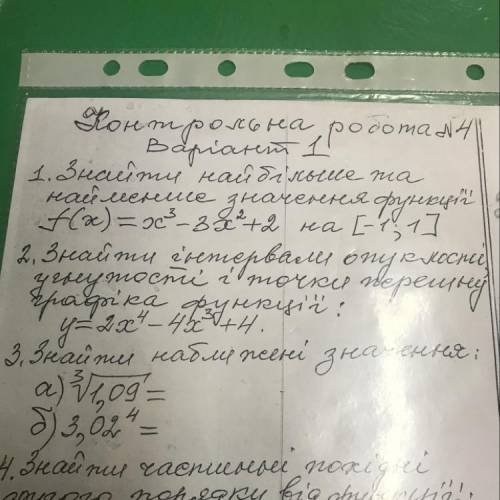 Контрольна робота №4
Варіант 1
1. Знайти найбільше та
найменше значення функції
f(x)=x³-3x²+2 на [-1; 1]
2. Знайти інтервали опуклості,
угнутості і точки перегину
графіка функції:
y=2x⁴-4x³+4.
3. Знайти наближені значення:
а) ∛1,09 =
б) 3,02⁴ =
4. Знайти частинні похідні
порядку від функції: